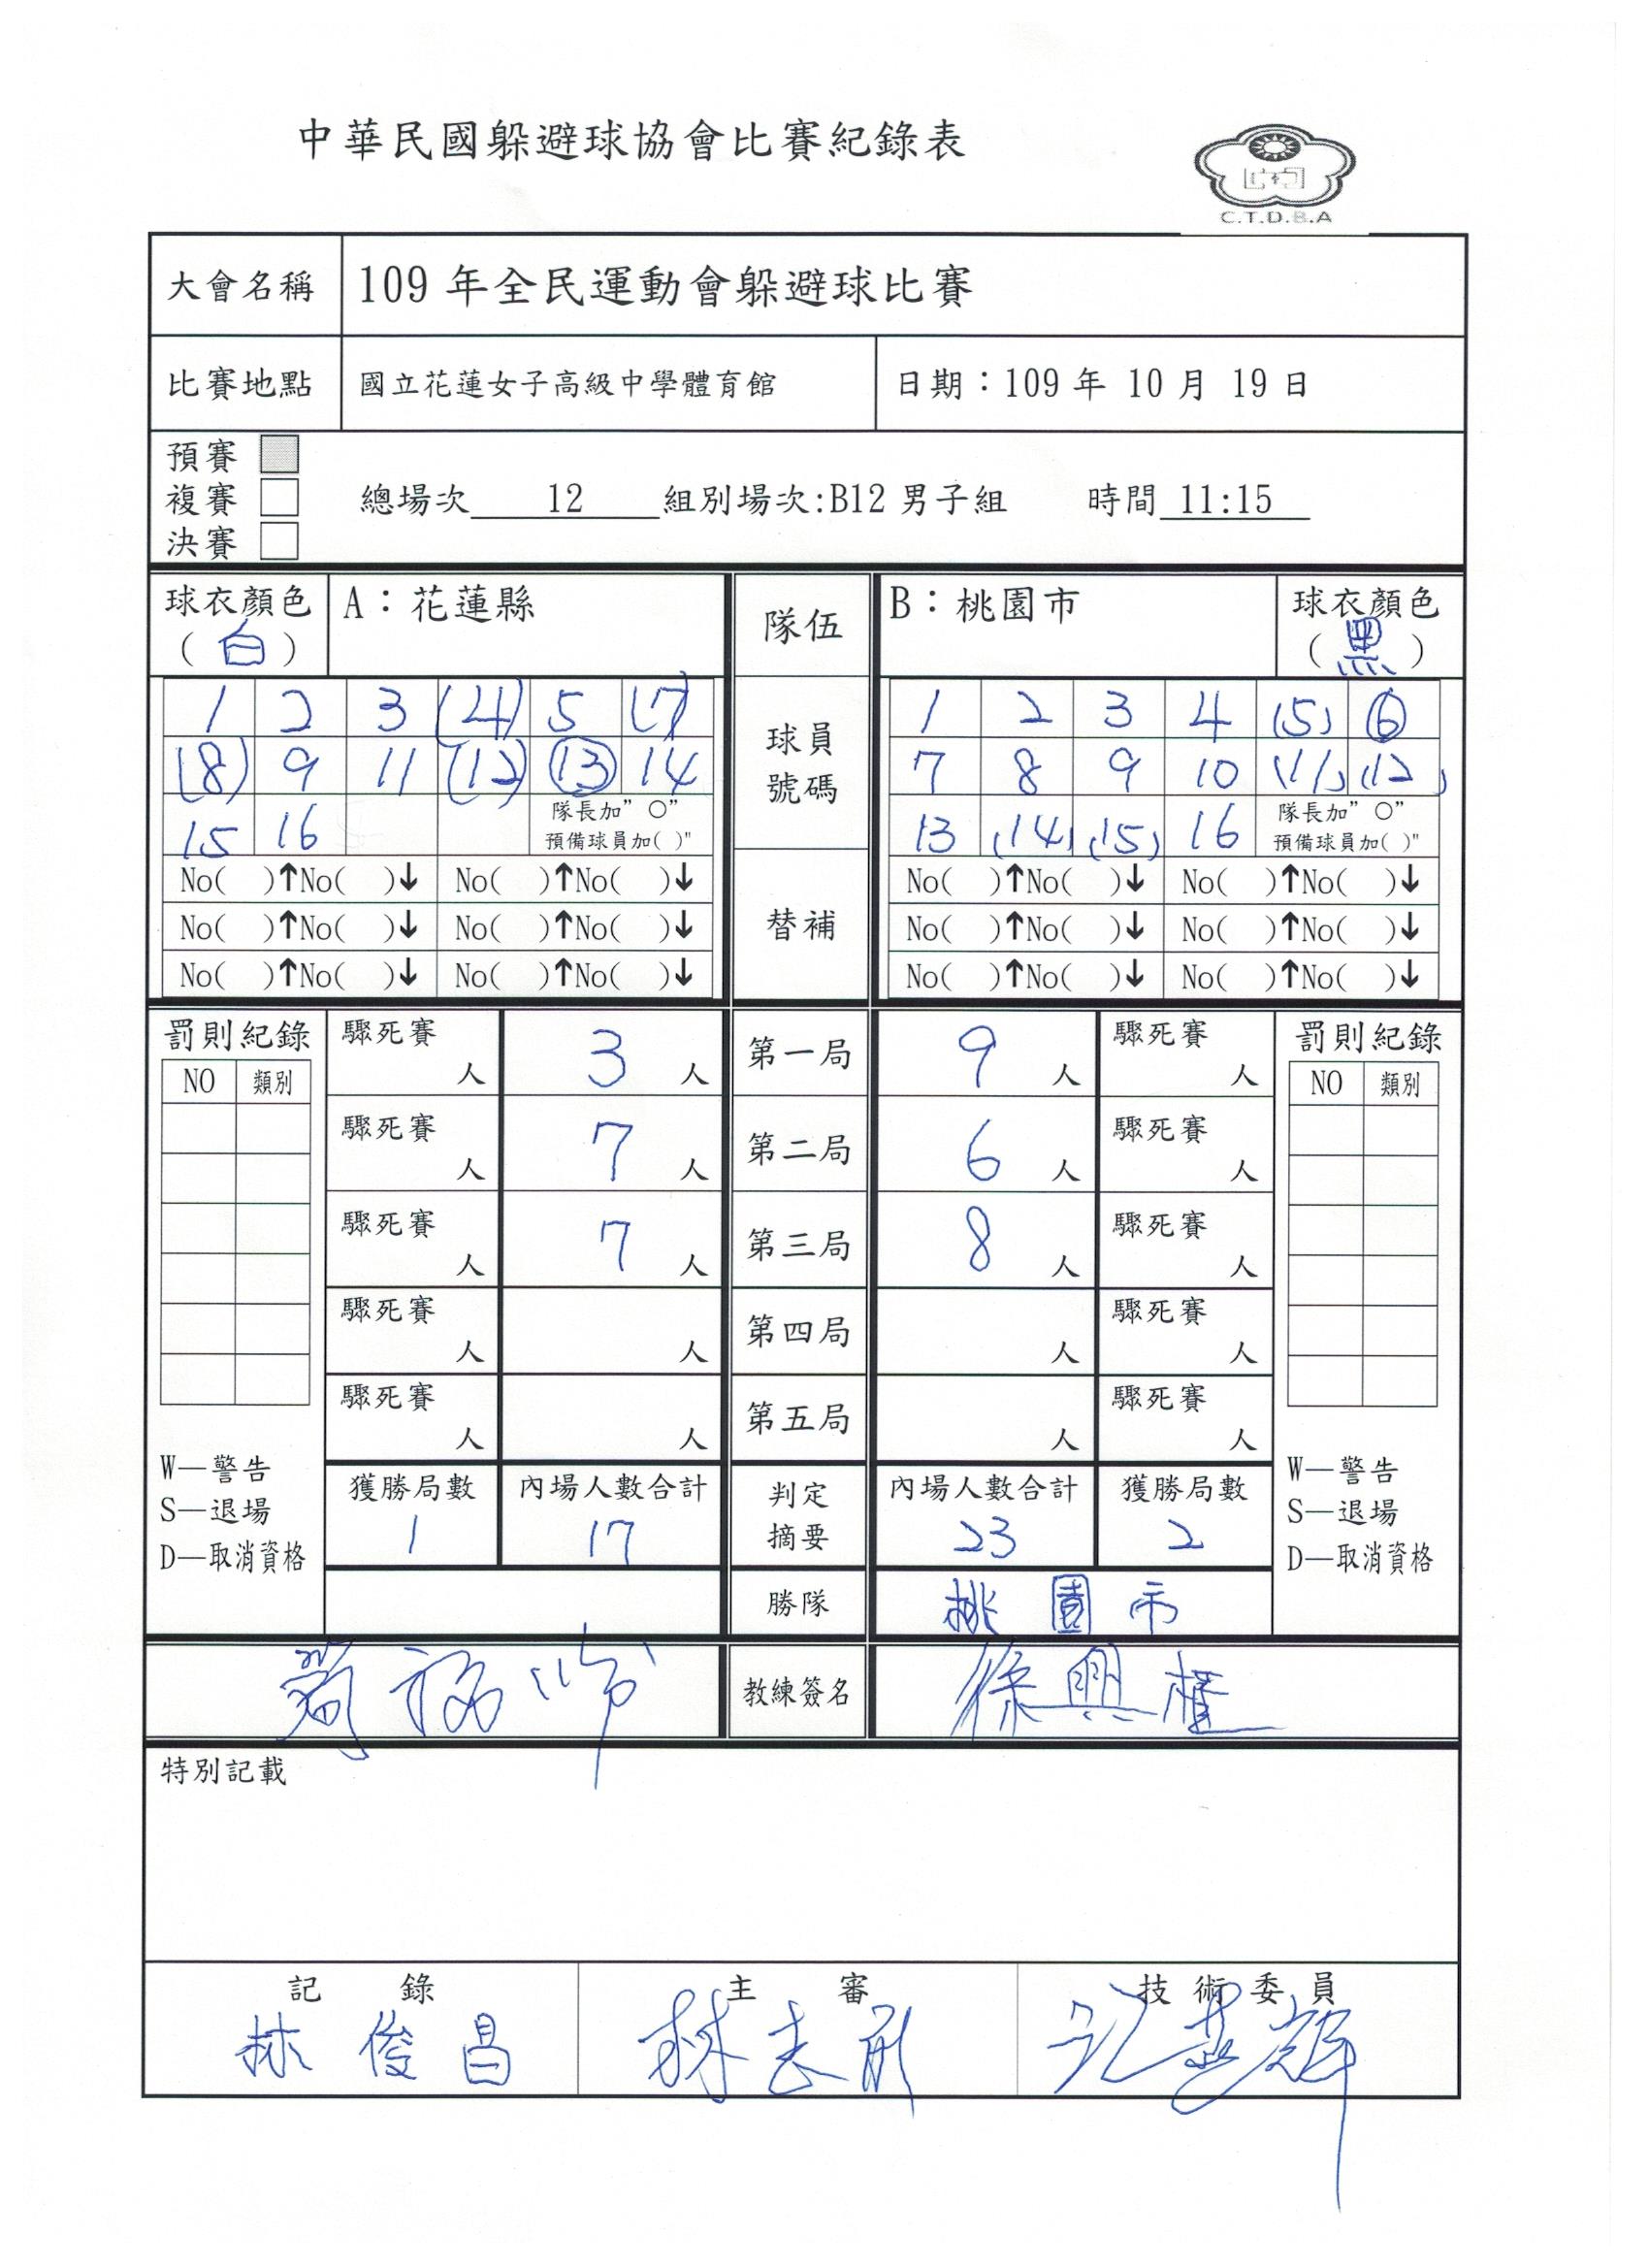 中華民國躲避球協會比賽紀錄表
C.T.D.B.A
大會名稱 109 年全民運動會躲避球比賽
比賽地點 國立花蓮女子高級中學體育館 日期：109 年 10 月 19 日
預賽
複賽 總場次 12 組別場次:B12 男子組 時間 11:15
決賽
球衣顏色 A：花蓮縣 隊伍 B：桃園市 球衣顏色
(白) (黑)
1 2 3 (4) 5 (7) 球員 1 2 3 4 (5) 6
(8) 9 11 (12) 13 14 號碼 7 8 9 10 (11) (12)
15 16 隊長加"○" 13 (14) (15) 16 隊長加"○"
預備球員加( )" 預備球員加( )"
No( )↑No( )↓ No( )↑No( )↓ 替補 No( )↑No( )↓ No( )↑No( )↓
No( )↑No( )↓ No( )↑No( )↓ No( )↑No( )↓ No( )↑No( )↓
No( )↑No( )↓ No( )↑No( )↓ No( )↑No( )↓ No( )↑No( )↓
罰則紀錄 驟死賽 人 3 人 第一局 9 人 驟死賽 人 罰則紀錄
NO 類別 NO 類別
驟死賽 人 7 人 第二局 6 人 驟死賽 人
驟死賽 人 7 人 第三局 8 人 驟死賽 人
驟死賽 人 人 第四局 人 驟死賽 人
驟死賽 人 人 第五局 人 驟死賽 人
W—警告 W—警告
S—退場 S—退場
D—取消資格 D—取消資格
獲勝局數 內場人數合計 判定 內場人數合計 獲勝局數
1 17 摘要 23 2
勝隊 桃園市
教練簽名 徐興權
特別記載
記 錄 主 審 技術委員
林俊昌